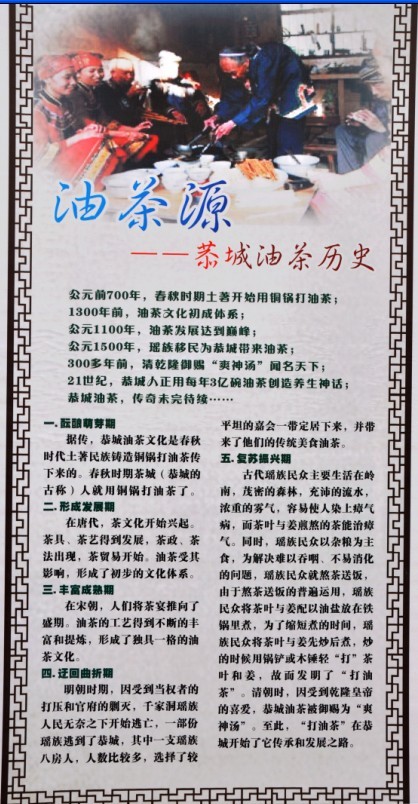 油茶源
——恭城油茶历史
公元前700年，春秋时期土著开始用铜锅打油茶；
1300年前，油茶文化初成体系；
公元1100年，油茶发展达到巅峰；
公元1500年，瑶族移民为恭城带来油茶；
300多年前，清乾隆御赐“爽神汤”闻名天下；
21世纪，恭城人正用每年3亿碗油茶创造养生神话；
恭城油茶，传奇未完待续……
一.酝酿萌芽期
据传，恭城油茶文化是春秋
时代土著民族铸造铜锅打油茶传
下来的。春秋时期茶城（恭城的
古称）人就用铜锅打油茶了。
二.形成发展期
在唐代，茶文化开始兴起。
茶具、茶艺得到发展，茶政、茶
法出现，茶贸易开始。油茶受其
影响，形成了初步的文化体系。
三.丰富成熟期
在宋朝，人们将茶宴推向了
盛期。油茶的工艺得到不断的丰
富和提炼，形成了独具一格的油
茶文化。
四.迂回曲折期
明朝时期，因受到当权者的
打压和官府的剿灭，千家洞瑶族
人民无奈之下开始逃亡，一部份
瑶族逃到了恭城，其中一支瑶族
八房人，人数比较多，选择了较
平坦的嘉会一带定居下来，并带
来了他们的传统美食油茶。
五.复苏振兴期
古代瑶族民众主要生活在岭
南，茂密的森林，充沛的流水，
浓重的雾气，容易使人染上瘴气
病，而茶叶与姜煎熬的茶能治瘴
气。同时，瑶族民众以杂粮为主
食，为解决难以吞咽、不易消化
的问题，瑶族民众就熬茶送饭，
由于熬茶送饭的普遍运用，瑶族
民众将茶叶与姜配以油盐放在铁
锅里煮，为了缩短煮的时间，瑶
族民众将茶叶与姜先炒后煮，炒
的时候用锅铲或木锤轻“打”茶
叶和姜，故而发明了“打油
茶”。清朝时，因受到乾隆皇帝
的喜爱，恭城油茶被御赐为“爽
神汤”。至此，“打油茶”在恭
城开始了它传承和发展之路。